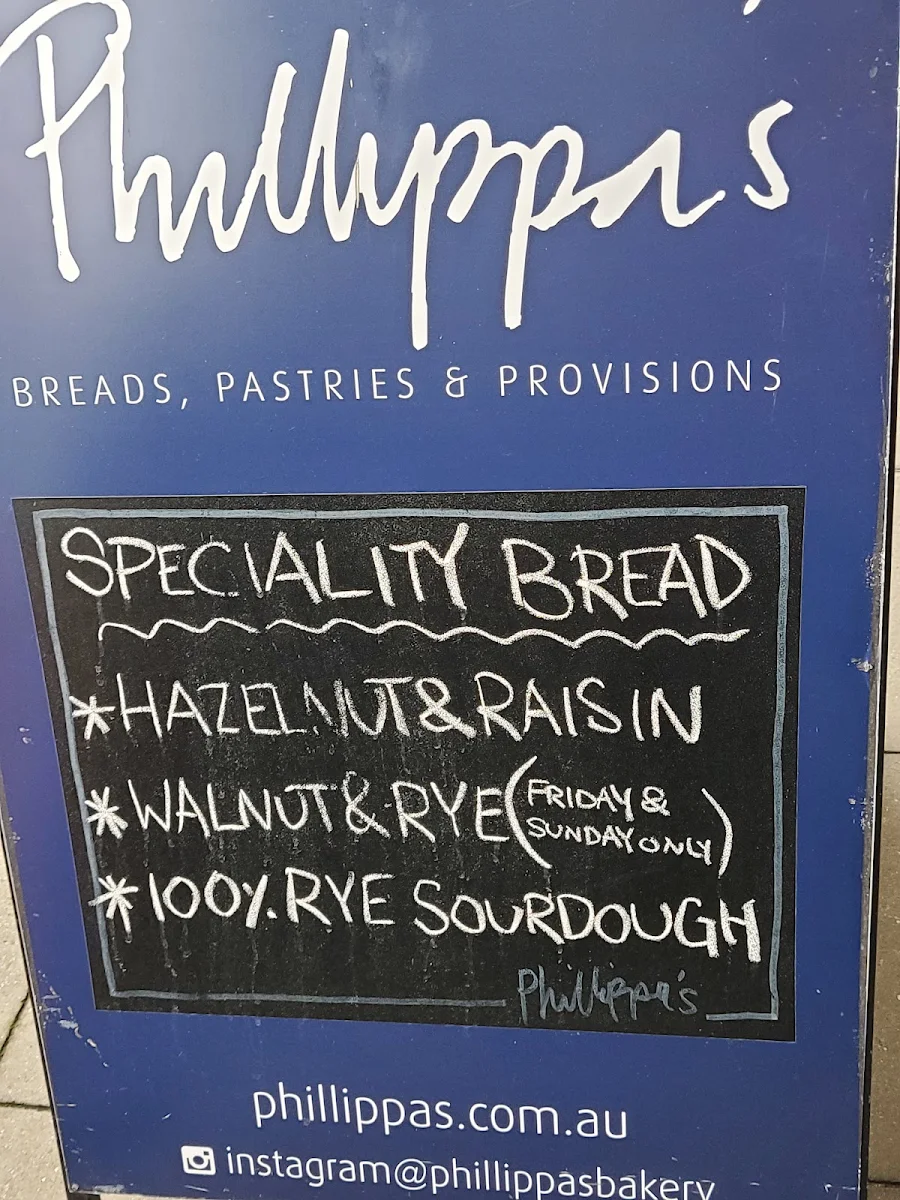 Phillippa's
BREADS, PASTRIES & PROVISIONS
SPECIALITY BREAD
*HAZELNUT & RAISIN
*WALNUT & RYE (FRIDAY &
SUNDAY ONLY)
*100% RYE SOURDOUGH
Phillippa's
phillippas.com.au
instagram@phillippasbakery